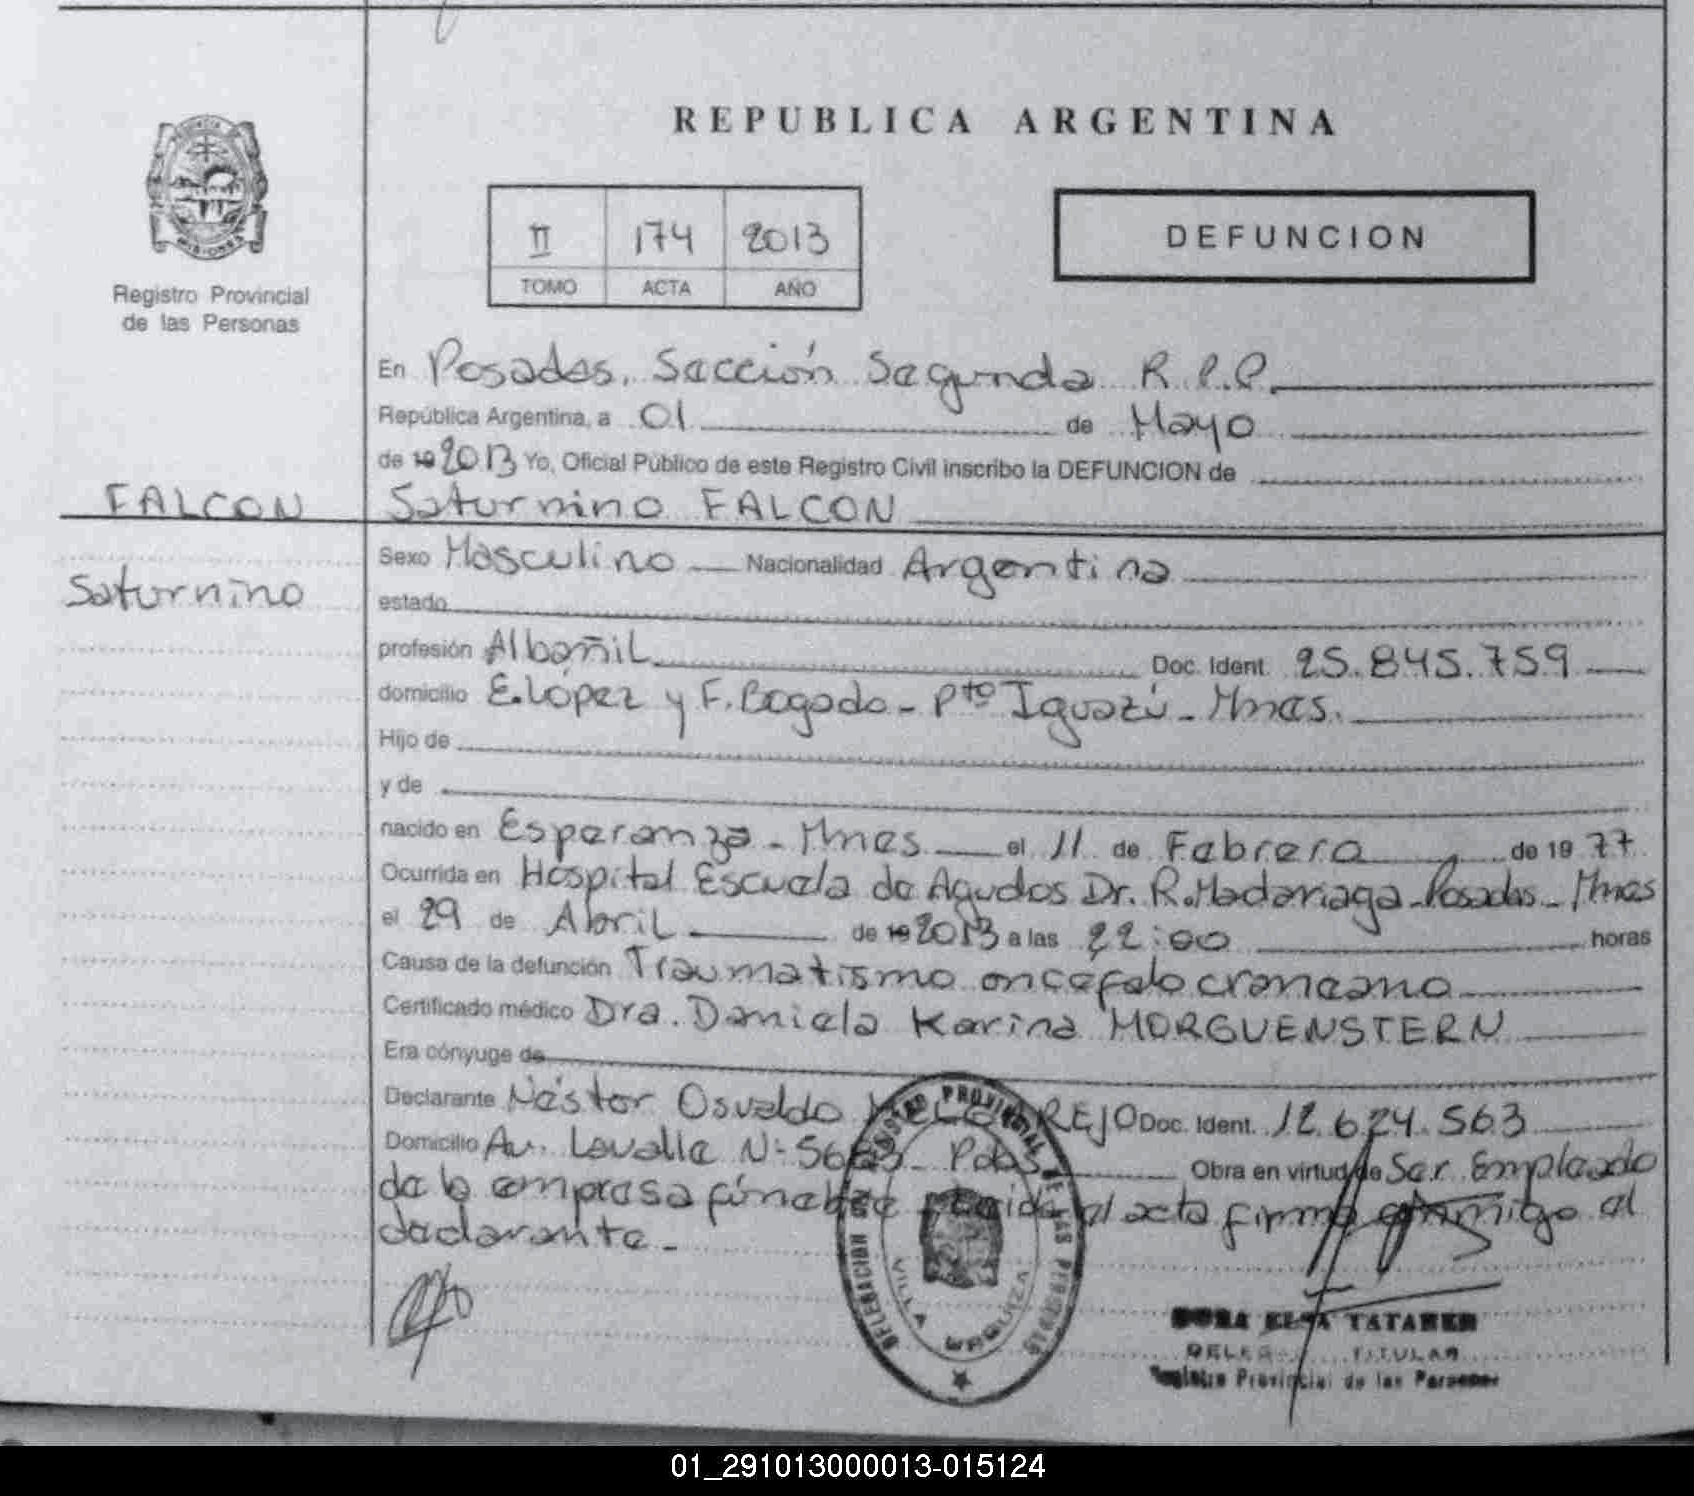 REPUBLICA ARGENTINA
II 174 2013
TOMO ACTA AÑO
DEFUNCION
Registro Provincial
de las Personas
En Posadas, Sección Segunda R.P.P.
República Argentina, a 01 de Mayo
de 19 2013 Yo, Oficial Público de este Registro Civil inscribo la DEFUNCION de
FALCON
Saturnino FALCON
Saturnino
Sexo Masculino Nacionalidad Argentina
estado
profesión Albañil Doc. Ident. 25.845.759
domicilio E. López y F. Bogado - Pto Iguazú - Mnes.
Hijo de
y de
nacido en Esperanza - Mnes el 11 de Febrero de 1977
Ocurrida en Hospital Escuela de Agudos Dr. R. Madariaga - Posadas - Mnes
el 29 de Abril de 19 2013 a las 22:00 horas
Causa de la defunción Traumatismo encefalo craneano
Certificado médico Dra. Daniela Karina MORGUENSTERN
Era cónyuge de
Declarante Néstor Osvaldo Doc. Ident. 12.624.563
Domicilio Av. Lavalle N: Pdas Obra en virtud de Ser Empleado
de la empresa fúnebre el acta firma conmigo el
declarante.-
DELEGACION REGISTRO PROVINCIAL DE LAS PERSONAS
VILLA URQUIZA
TATAREN
TITULAR
Registro Provincial de las Personas
01_291013000013-015124